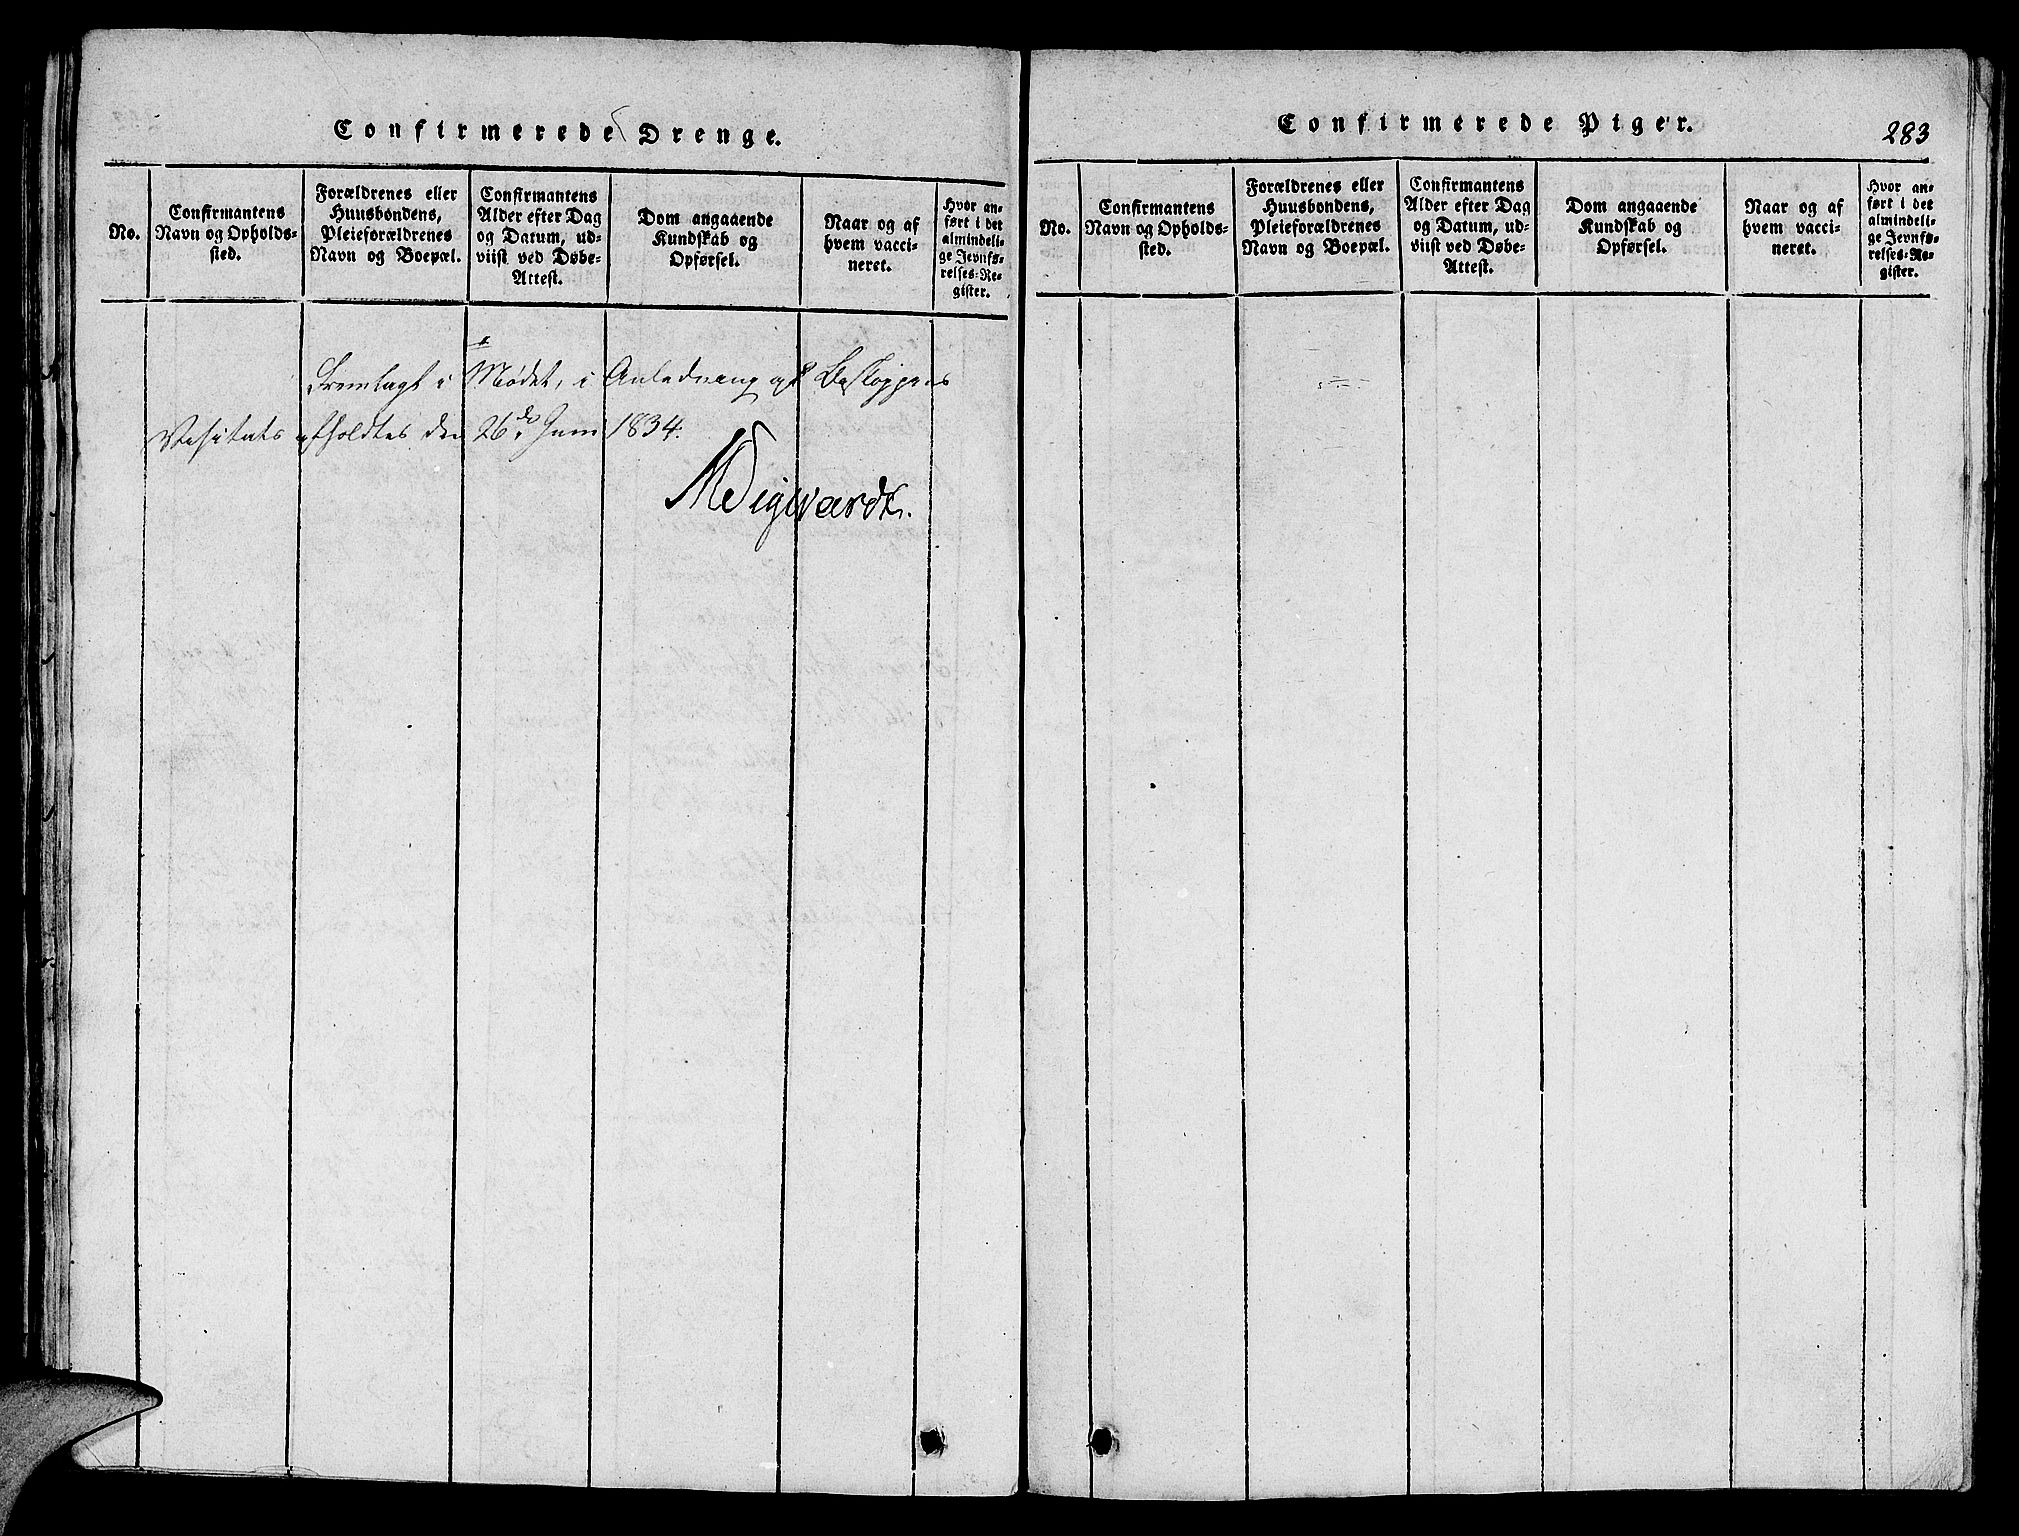 Confirmerede Drenge.
No.
Confirmantens
Navn og Opholds-
sted.
Forældrenes eller
Huusbondens,
Pleieforældrenes
Navn og Boepæl.
Confirmantens
Alder efter Dag
og Datum, ud-
viist ved Døbe-
Attest.
Dom angaaende
Kundskab og
Opførsel.
Naar og af
hvem vacci-
neret.
Hvor an-
ført i det
almindeli-
ge Jevnfø-
relses-Re-
gister.
Fremlagt i Mødet, i Anledning af Bestoppens
Visitats afholdtes den 26de Juni 1834.
Confirmerede Piger.
283
No.
Confirmantens
Navn og Opholds-
sted.
Forældrenes eller
Huusbondens,
Pleieforældrenes
Navn og Boepæl.
Confirmantens
Alder efter Dag
og Datum, ud-
viist ved Døbe-
Attest.
Dom angaaende
Kundskab og
Opførsel.
Naar og af
hvem vacci-
neret.
Hvor an-
ført i det
almindeli-
ge Jevnfø-
relses-Re-
gister.